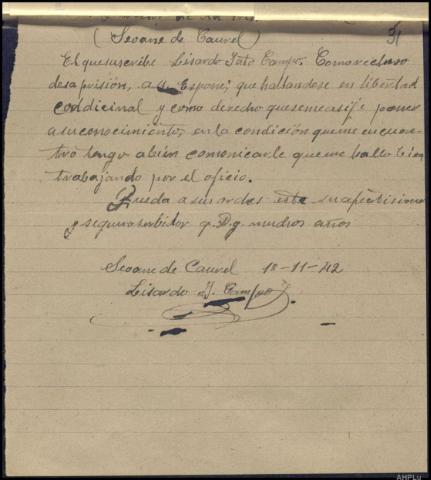 31
(Seoane de Caurel)
El que suscribe Lisardo Tato Campo, Como recluso
desaprisión, a Espone; que hallandose en libertad
condicinal y como derecho que se me asije poner
a su conocimiento, en la condición que me encuen
tro tengo a bien comunicarle que me hallo bien
trabajando por el oficio.
Queda a sus ordes este su afectisimo
y seguro serbidor q. D. g. muchos años
Seoane de Caurel 18-11-42
Lisardo T. Campo
AHPLu